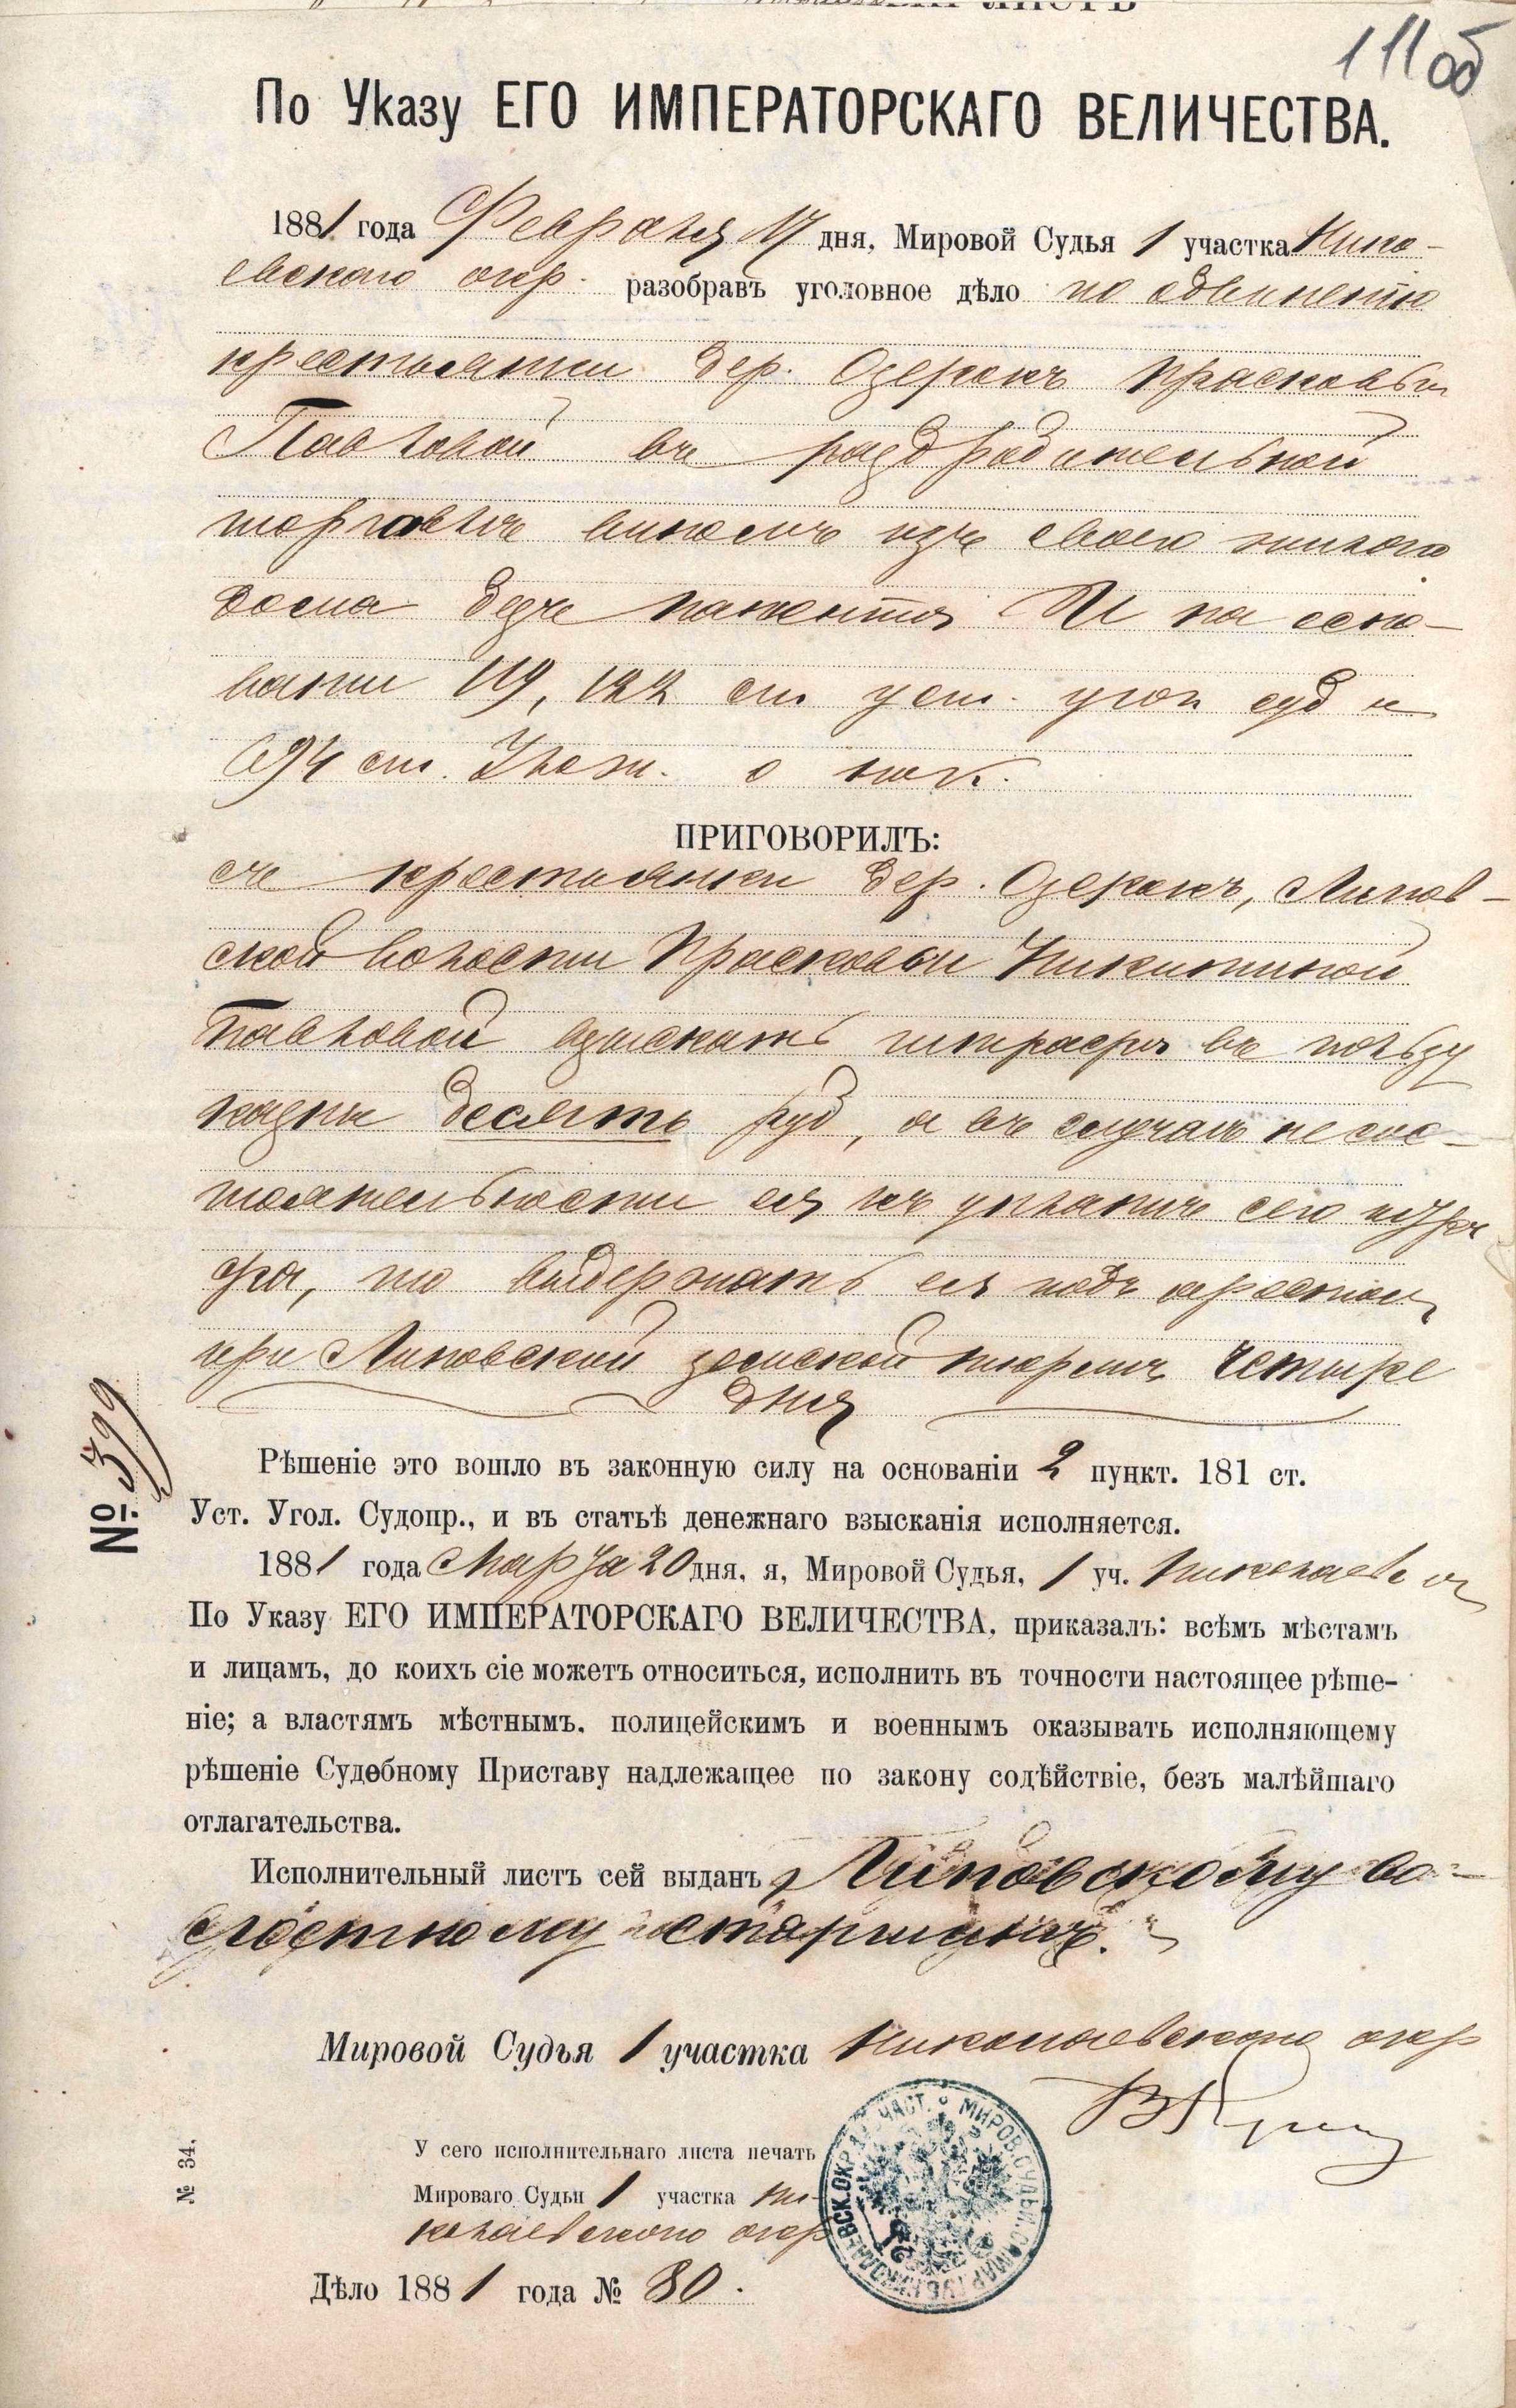 111об
По Указу ЕГО ИМПЕРАТОРСКАГО ВЕЛИЧЕСТВА.
1881 года Февраля 17 дня, Мировой Судья 1 участка Нико-
евскаго окр. разобравъ уголовное дѣло по обвиненію
крестьянки дер. Озерокъ Прасковьи
Павловой въ раздробительной
торговлѣ виномъ изъ своего жилого
дома безъ патента И на осно-
ваніи 119, 122 ст уст. угол суд и
694 ст. Улож. о нак.
ПРИГОВОРИЛЪ:
съ крестьянки дер. Озерокъ, Липов-
ской волости Прасковьи Никитиной
Павловой взыскать штрафа въ пользу
казны десять руб, а въ случаѣ несос-
тоятельности ея къ уплатѣ сего штра
фа, то выдержать ея подъ арестом
при Липовской земской тюрьмѣ четыре
дня
№ 399
Рѣшеніе это вошло въ законную силу на основаніи 2 пункт. 181 ст.
Уст. Угол. Судопр., и въ статьѣ денежнаго взысканія исполняется.
1881 года Марта 20 дня, я, Мировой Судья, 1 уч. Николаевск
По Указу ЕГО ИМПЕРАТОРСКАГО ВЕЛИЧЕСТВА, приказалъ: всѣмъ мѣстамъ
и лицамъ, до коихъ сіе можетъ относиться, исполнить въ точности настоящее рѣше-
ніе; а властямъ мѣстнымъ, полицейскимъ и военнымъ оказывать исполняющему
рѣшеніе Судебному Приставу надлежащее по закону содѣйствіе, безъ малѣйшаго
отлагательства.
Исполнительный листъ сей выданъ Липовскому во-
лостному старшинѣ.
Мировой Судья 1 участка Николаевскаго окр
У сего исполнительнаго листа печать
Мироваго Судьи 1 участка Ни-
колаевскаго окр
Дѣло 1881 года № 80.
№ 34.
МИРОВ. СУДЬИ. САМАР. ГУБ. НИКОЛАЕВСК. ОКР. 1 УЧАСТ.